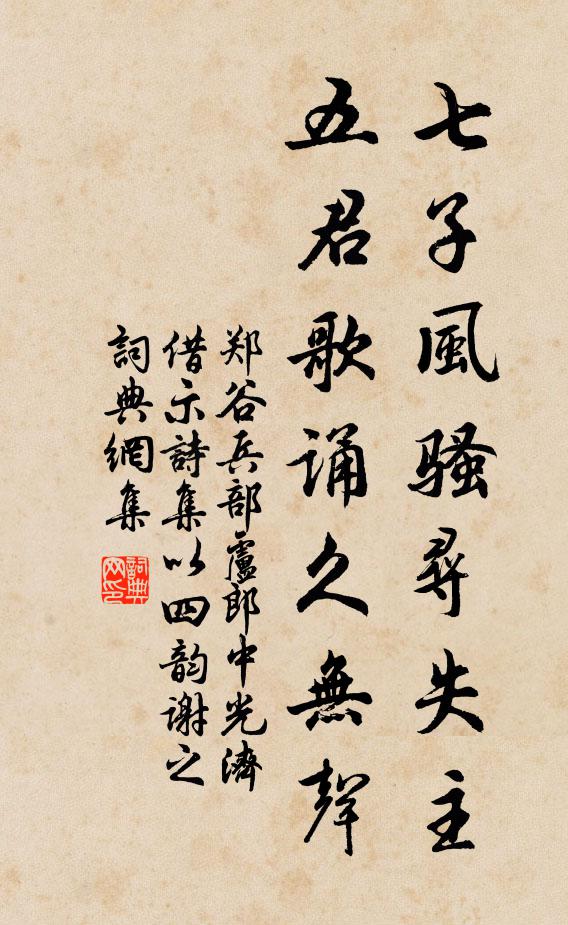 七子風騷尋失主
五君歌誦久無聲
郑谷兵部盧郎中光濟
借示詩集以四韵谢之
詞典網集
詞典网印